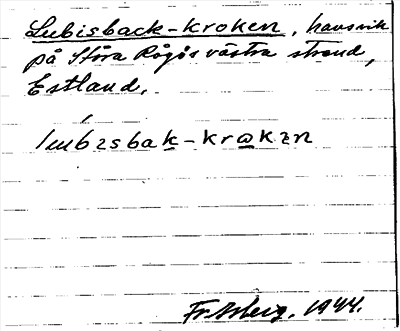 Lubisback-kroken, havsvik
på Stora Rågös västra strand,
Estland.
lúubɿsbak-krωkɿn
1944.